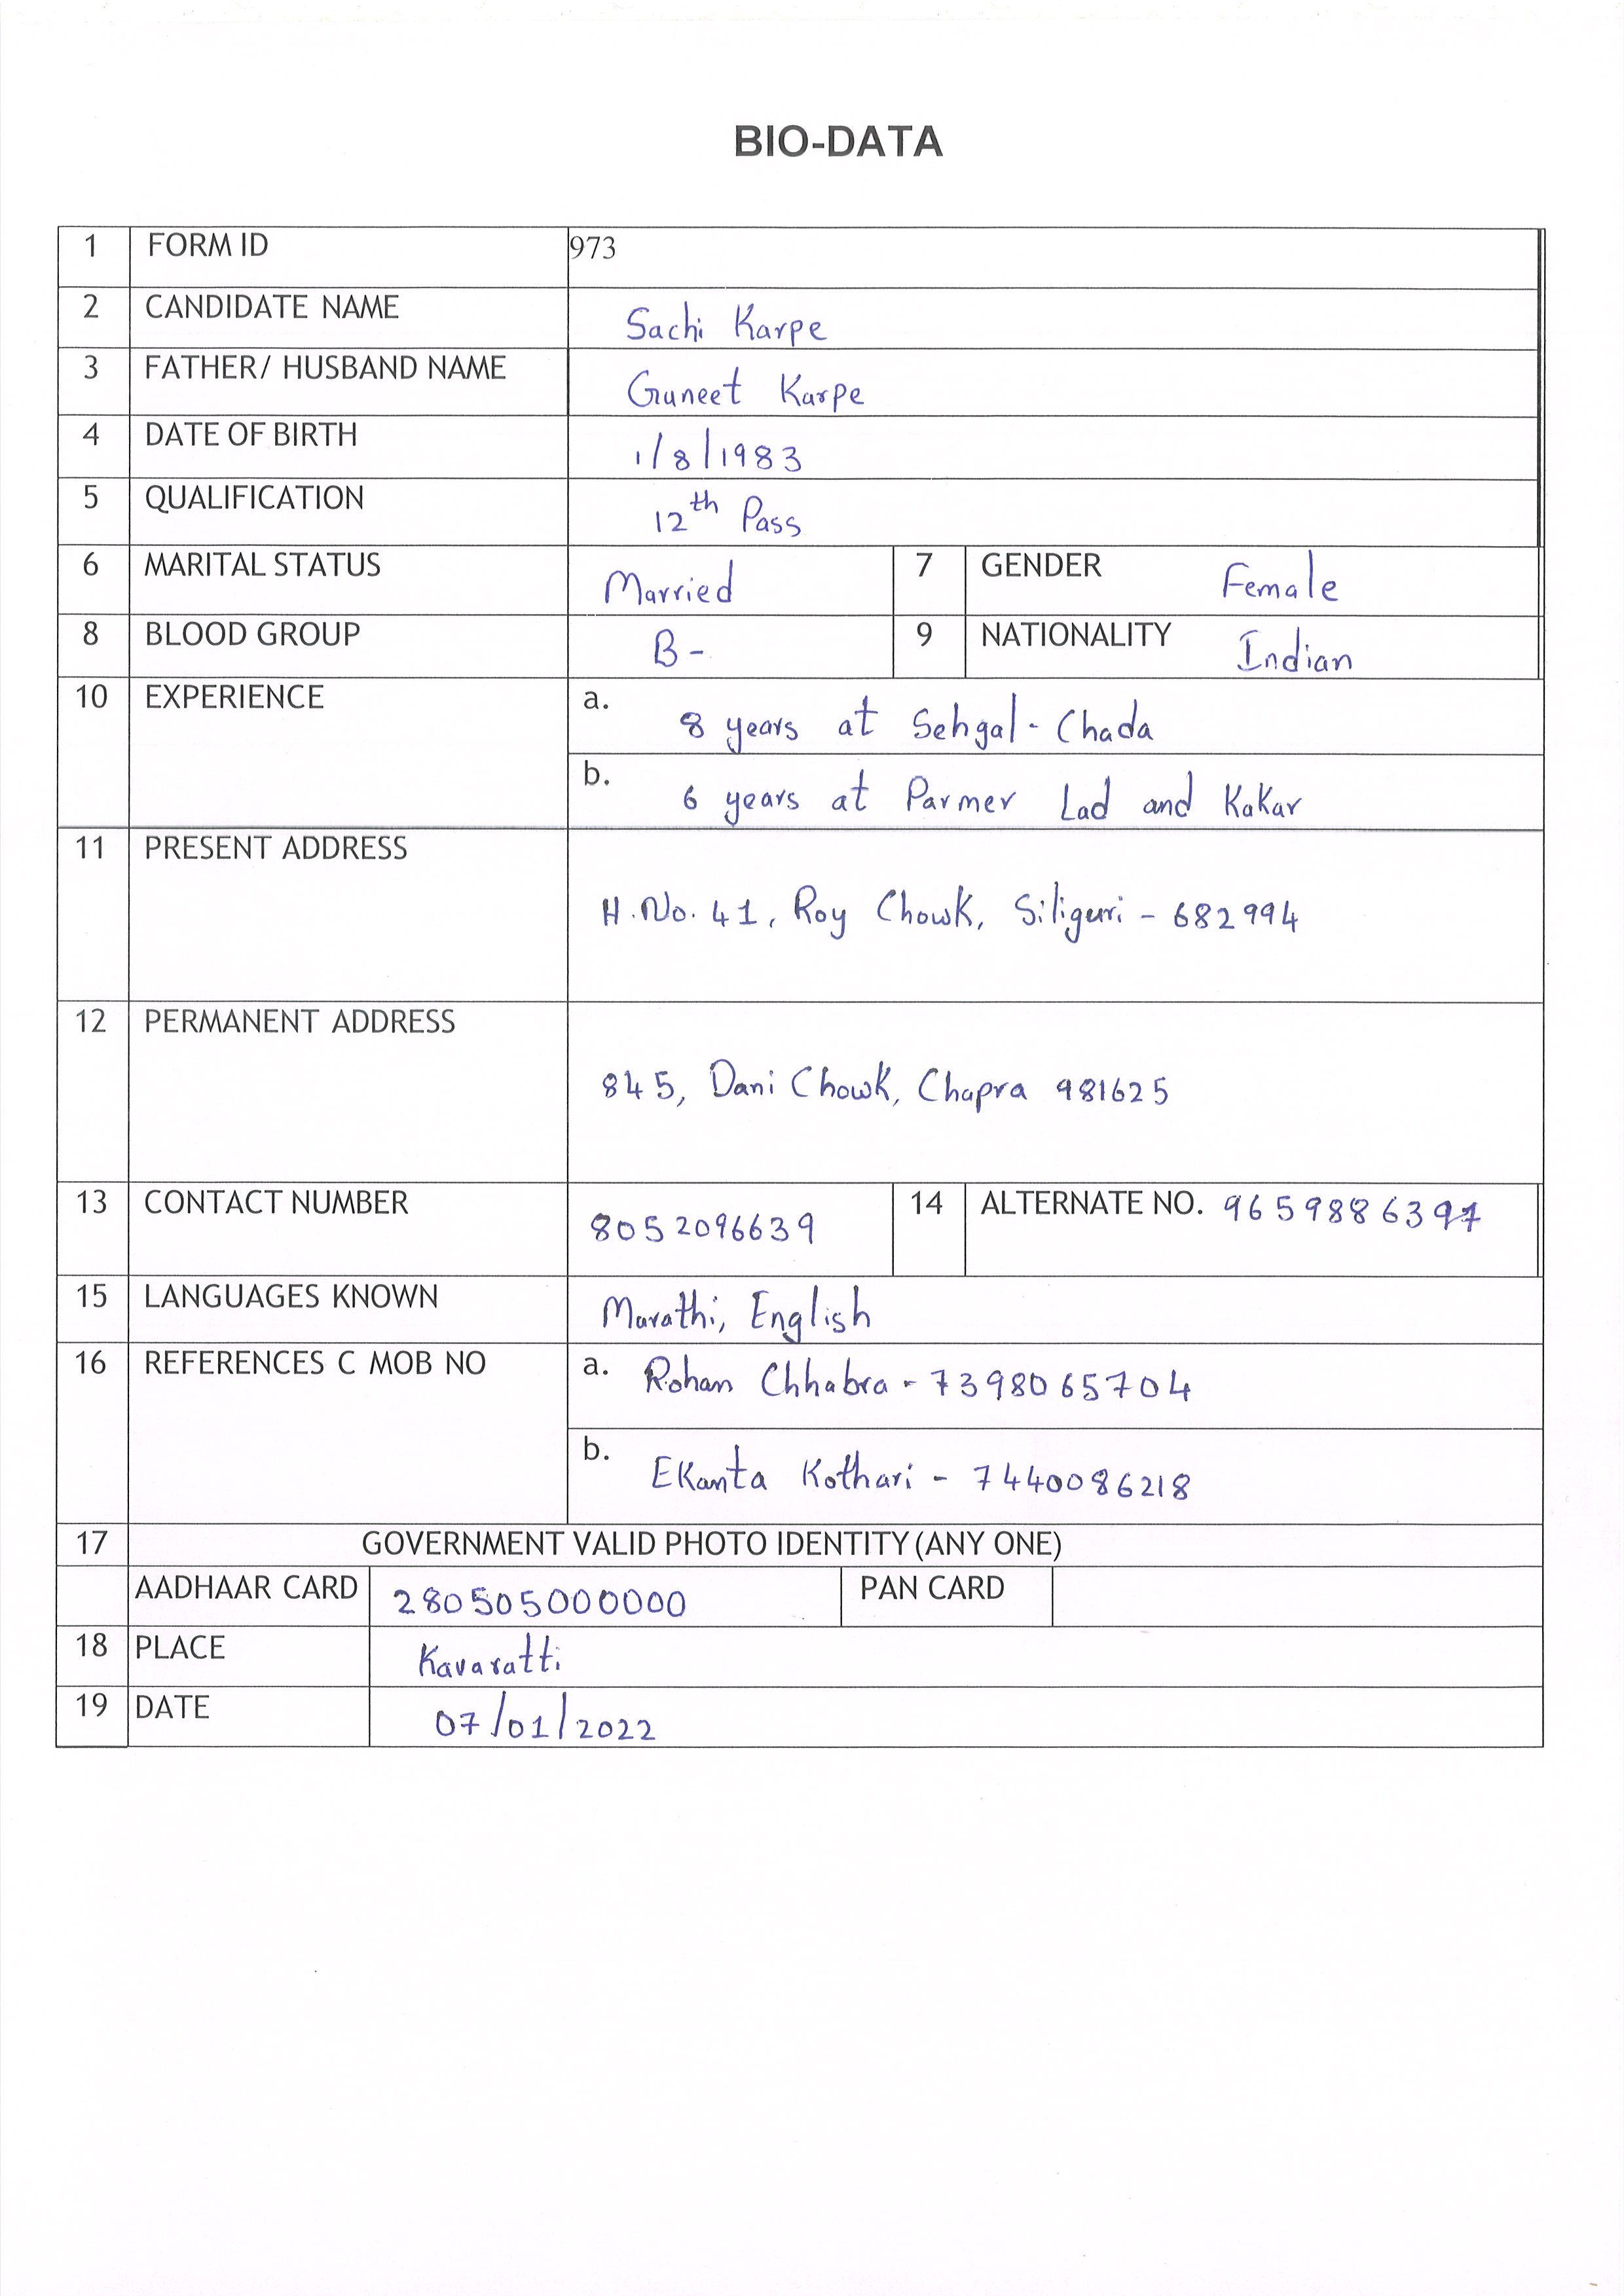 BIO-DATA
1 FORM ID 973
2 CANDIDATE NAME Sachi Karpe
3 FATHER/ HUSBAND NAME Guneet Karpe
4 DATE OF BIRTH 1/8/1983
5 QUALIFICATION 12th Pass
6 MARITAL STATUS Married 7 GENDER Female
8 BLOOD GROUP B- 9 NATIONALITY Indian
10 EXPERIENCE a. 8 years at Sehgal - Chada
b. 6 years at Parmer Lad and Kakar
11 PRESENT ADDRESS
H.No. 41, Roy Chowk, Siliguri - 682994
12 PERMANENT ADDRESS
845, Dani Chowk, Chapra 981625
13 CONTACT NUMBER 8052096639 14 ALTERNATE NO. 9659886397
15 LANGUAGES KNOWN Marathi, English
16 REFERENCES C MOB NO a. Rohan Chhabra - 7398065704
b. Ekanta Kothari - 7440086218
17 GOVERNMENT VALID PHOTO IDENTITY (ANY ONE)
AADHAAR CARD 280505000000 PAN CARD
18 PLACE Kavaratti
19 DATE 07/01/2022